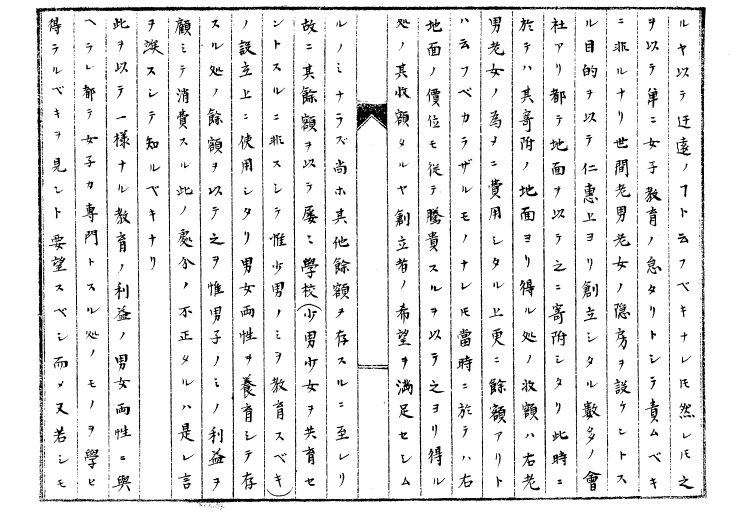 ルヤ以テ迂遠ノヿト云フベキナレ𪜈然レ𪜈之
ヲ以テ第二女子教育ノ怠タリトシテ責ムベキ
ニ非ルナリ世間老男老女ノ隠房ヲ設ケントス
ル目的ヲ以テ仁恵上ヨリ創立シタル数多ノ會
社アリ都テ地面ヲ以テ之ニ寄附シタリ此時ニ
於テハ其寄附ノ地面ヨリ得ル処ノ收額ハ右老
男老女ノ為メニ費用シタル上更ニ餘額アリト
ハ云フベカラザルモノナレ𪜈當時ニ於テハ右
地面ノ價位モ従テ騰貴スルヲ以テ之ヨリ得ル
処ノ其收額タルヤ創立者ノ希望ヲ満足セシム
ルノミナラズ尚ホ其他餘額ヲ存スルニ至レリ
故ニ其餘額ヲ以テ屡ミ學校(少男少女ヲ共育セ
ントスルニ非スシテ惟少男ノミヲ教育スベキ)
ノ設立上ニ使用シタリ男女両性ヲ養育シテ存
スル処ノ餘額ヲ以テ之ヲ惟男子ノミノ利益ヲ
顧ミテ消費スル此ノ處分ノ不正タルハ是レ言
ヲ涘スシテ知ルベキナリ
此ヲ以テ一様ナル教育ノ利益ノ男女両性ニ與
ヘラレ都テ女子カ専門トスル処ノモノヲ學ヒ
得テルベキヲ見ント要望スベシ而メ又若シモ